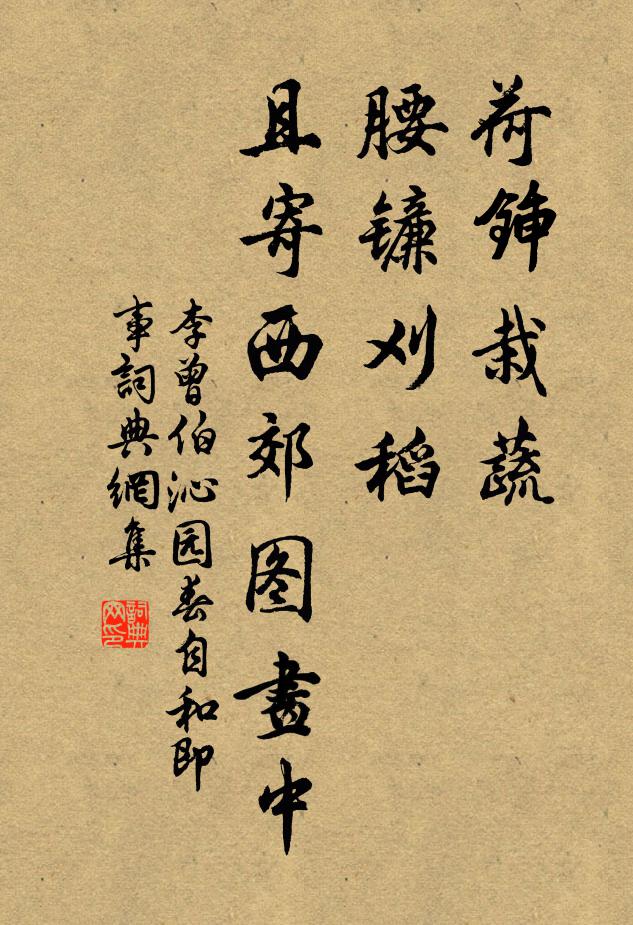 荷鍤栽蔬
腰镰刈稻
且寄西郊图畫中
李曾伯沁园春自和即
事詞典網集
詞典网印